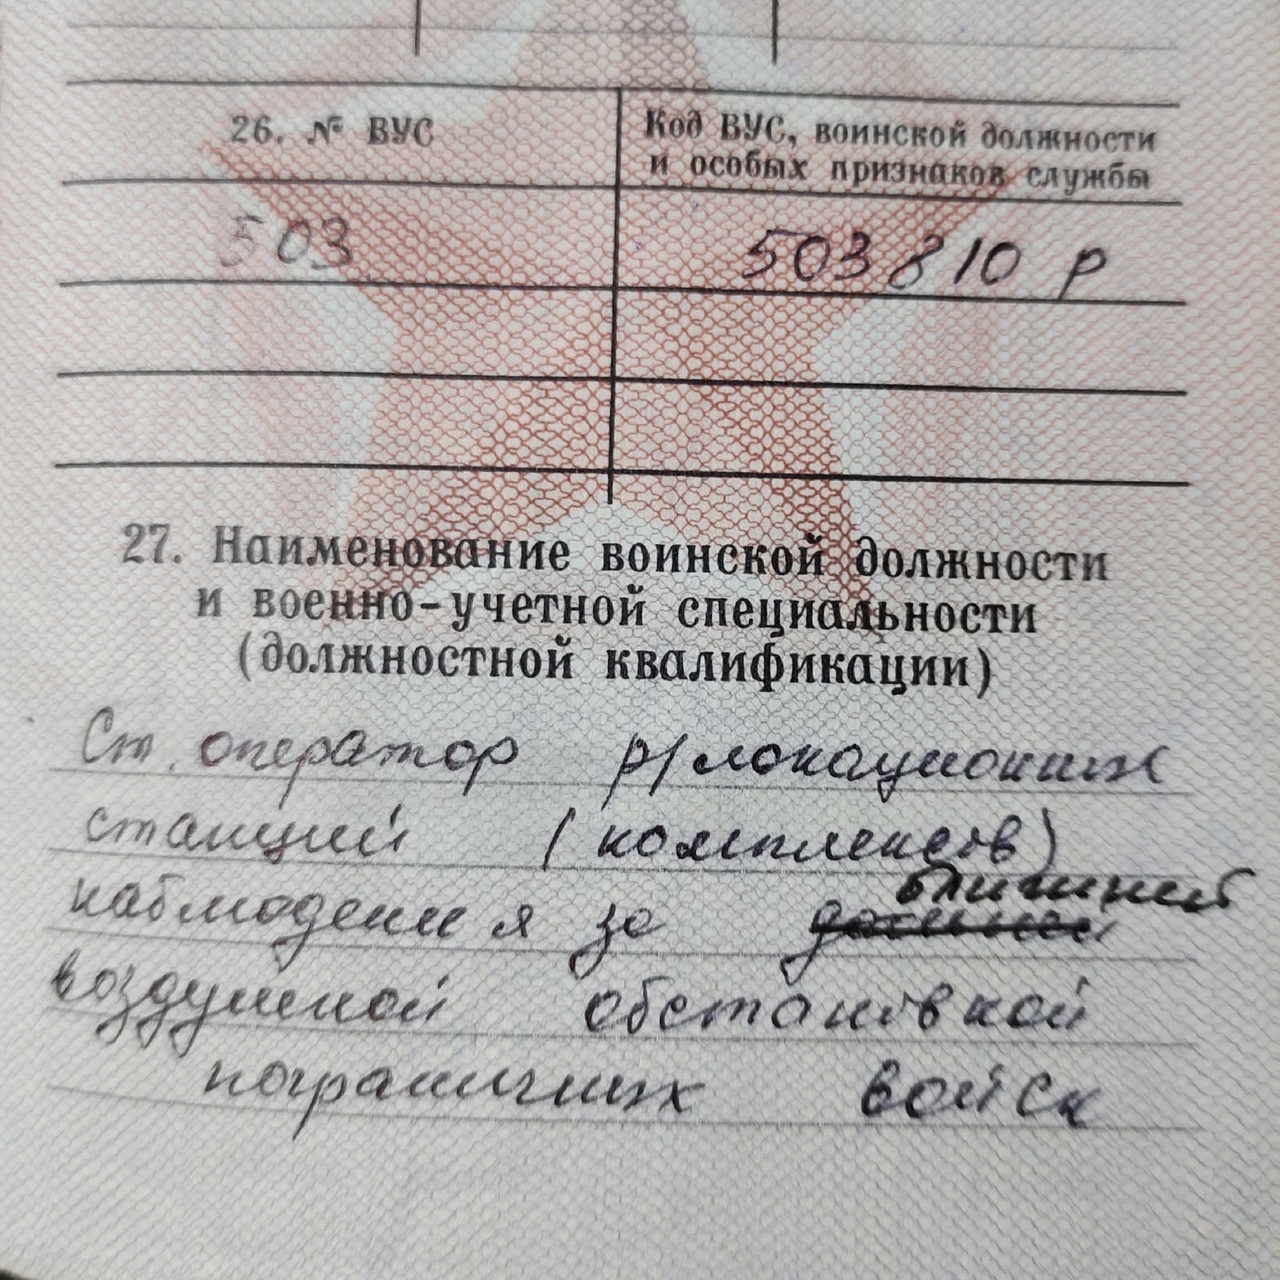 26. № ВУС
Код ВУС, воинской должности
и особых признаков службы
503
503810 Р
27. Наименование воинской должности
и военно-учетной специальности
(должностной квалификации)
Ст. оператор р/локационных
станций (комплексов)
ближней
наблюдения за
воздушной обстановкой
пограничных войск